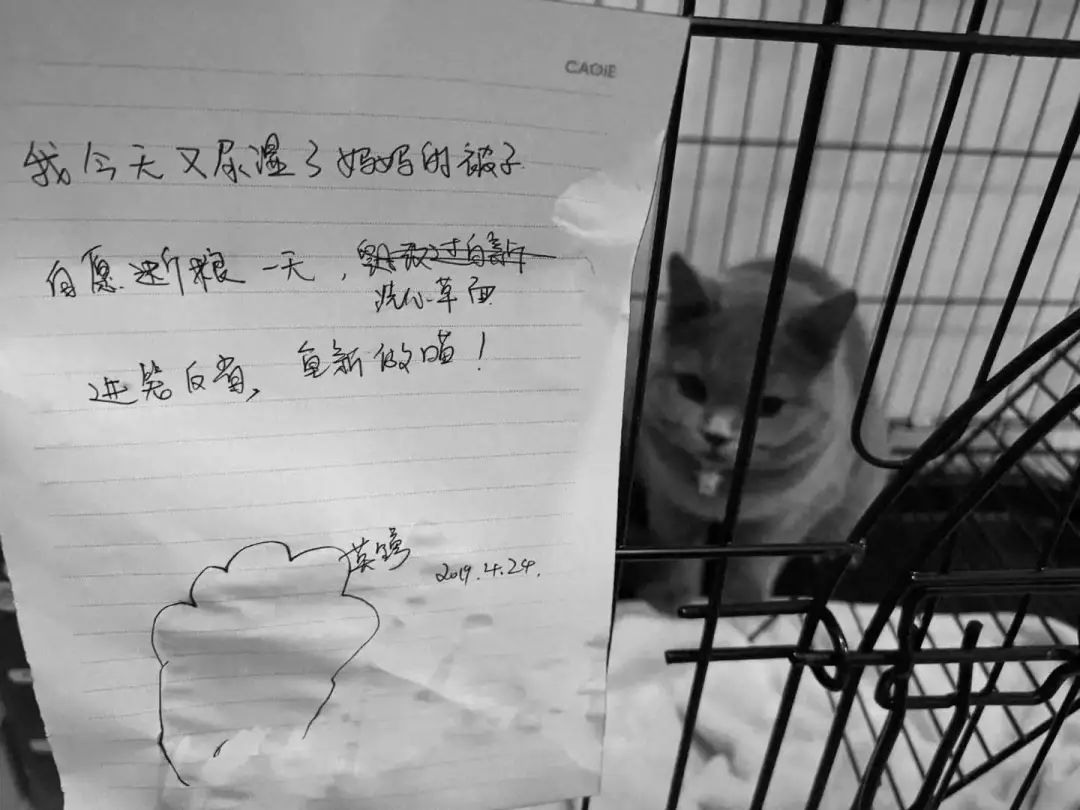 CAOiE
我今天又尿湿了妈妈的被子
自愿断粮一天,改过自新
洗心革面
进笼反省,重新做喵!
2019.4.24.